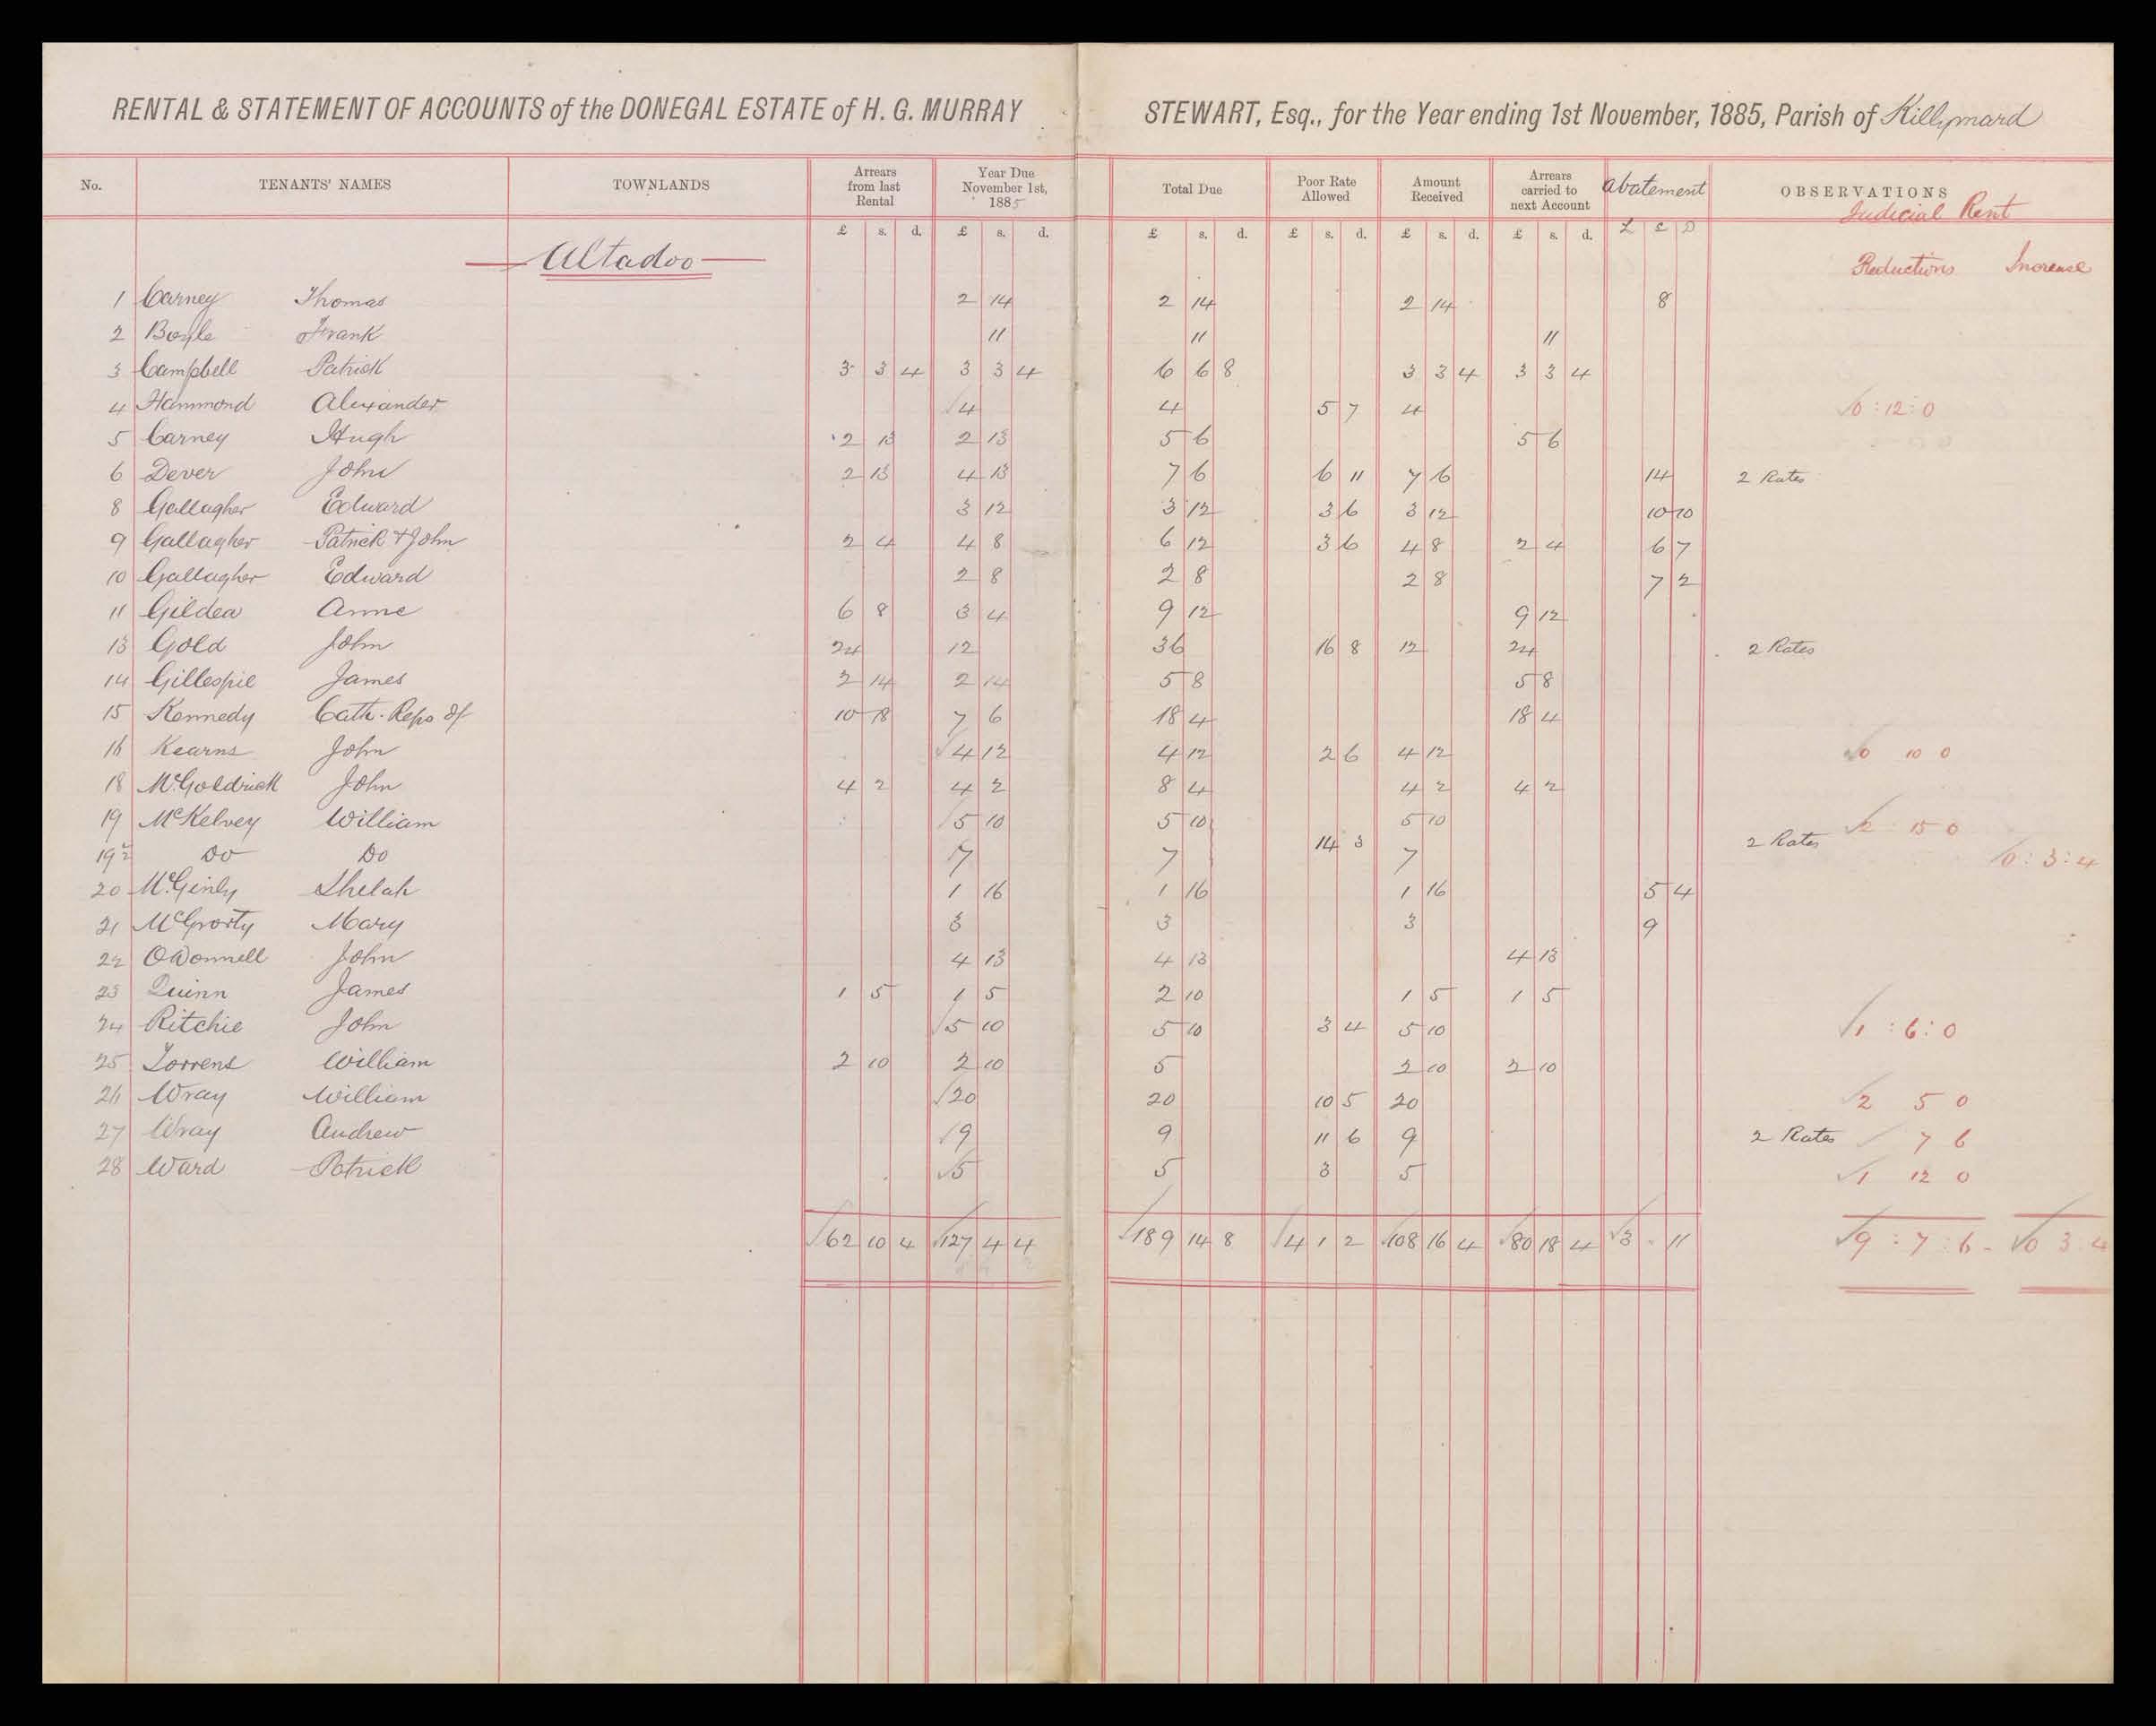 RENTAL & STATEMENT OF ACCOUNTS of the DONEGAL ESTATE of H. G. MURRAY STEWART, Esq., for the Year ending 1st November, 1885, Parish of Killymard
No. TENANTS' NAMES TOWNLANDS Arrears from last Rental Year Due November 1st, 1885 Total Due Poor Rate Allowed Amount Received Arrears carried to next Account Abatement OBSERVATIONS
Judicial Rent
£ s. d. £ s. d. £ s. d. £ s. d. £ s. d. £ s. d. £ S D
Altadoo Reductions Increase
1 Carney Thomas 2 14 2 14 2 14 8
2 Boyle Frank 11 11 11
3 Campbell Patrick 3 3 4 3 3 4 6 6 8 3 3 4 3 3 4
4 Hammond Alexander 4 4 5 7 4 0:12:0
5 Carney Hugh 2 13 2 13 5 6 5 6
6 Dever John 2 13 4 13 7 6 6 11 7 6 14 2 Rates
8 Gallagher Edward 3 12 3 12 3 6 3 12 10 10
9 Gallagher Patrick & John 2 4 4 8 6 12 3 6 4 8 2 4 6 7
10 Gallagher Edward 2 8 2 8 2 8 7 2
11 Gildea Anne 6 8 3 4 9 12 9 12
13 Gold John 24 12 36 16 8 12 24 2 Rates
14 Gillespie James 2 14 2 14 5 8 5 8
15 Kennedy Cath. Reps of 10 18 7 6 18 4 18 4
16 Kearns John 4 12 4 12 2 6 4 12 0 10 0
18 McGoldrick John 4 2 4 2 8 4 4 2 4 2
19 McKelvey William 5 10 5 10 5 10 2 15 0
19½ Do Do 7 7 14 3 7 2 Rates 0:3:4
20 McGinly Shelah 1 16 1 16 1 16 5 4
21 McGrorty Mary 3 3 3 9
22 O'Donnell John 4 13 4 13 4 13
23 Quinn James 1 5 1 5 2 10 1 5 1 5
24 Ritchie John 5 10 5 10 3 4 5 10 1:6:0
25 Torrens William 2 10 2 10 5 2 10 2 10
26 Wray William 20 20 10 5 20 2 5 0
27 Wray Andrew 9 9 11 6 9 2 Rates 7 6
28 Ward Patrick 5 5 3 5 1 12 0
62 10 4 127 4 4 189 14 8 4 1 2 108 16 4 80 18 4 3 - 11 9:7:6 - 0 3 4